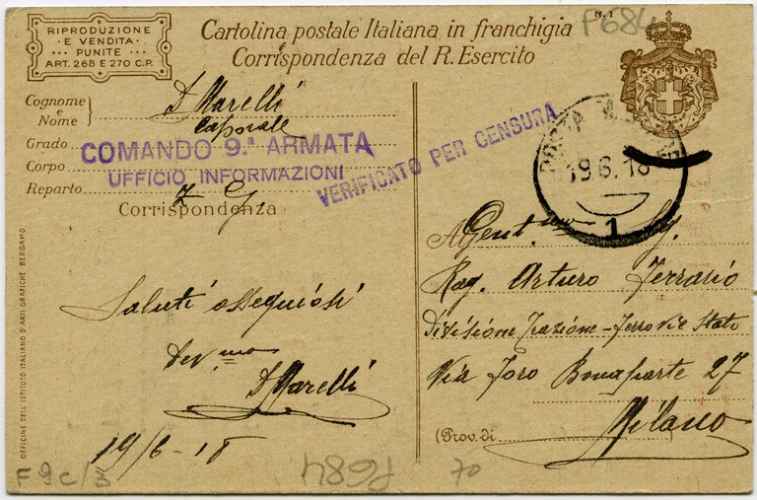 RIPRODUZIONE
E VENDITA
PUNITE
ART. 268 E 270 C.P.
Cartolina postale Italiana in franchigia
Corrispondenza del R. Esercito
P684
Cognome
e
Nome
D Marelli
Caporale
Grado
Corpo
Reparto
COMANDO 9.ª ARMATA
UFFICIO INFORMAZIONI
VERIFICATO PER CENSURA
POSTA
19.6.18
1
Corrispondenza
Saluti ossequiosi
dev.mo
D Marelli
19/6-18
A Gent.mo Sg.
Rag. Arturo Ferrario
Divisione Trazione - Ferrovie Stato
Via Foro Bonaparte 27
Milano
(Prov. di
OFFICINE DELL'ISTITUTO ITALIANO D'ARTI GRAFICHE BERGAMO
F9c/3
P684
70